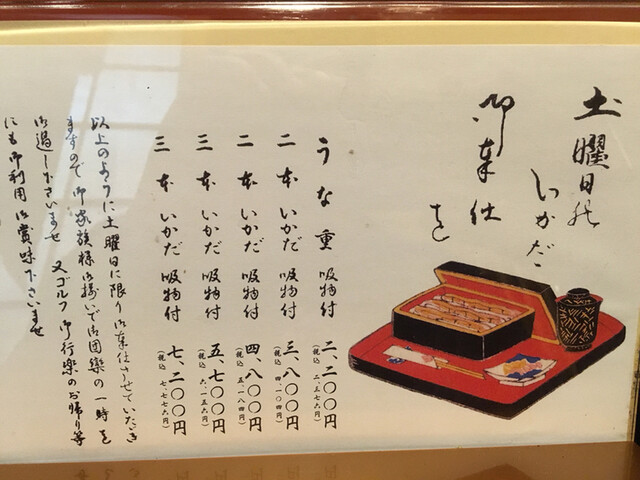 土曜日の
いかだ
御奉仕
を
うな重 吸物付 二、二〇〇円
(税込 二、三七六円)
二本いかだ 吸物付 三、八〇〇円
(税込 四、一〇四円)
二本いかだ 吸物付 四、八〇〇円
(税込 五、一八四円)
三本いかだ 吸物付 五、七〇〇円
(税込 六、一五六円)
三本いかだ 吸物付 七、二〇〇円
(税込 七、七七六円)
以上のように土曜日に限り御奉仕させていただき
ますので 御家族様御揃いで御団欒の一時を
御過し下さいませ 又ゴルフ 御行楽のお帰り等
にも御利用御賞味下さいませ